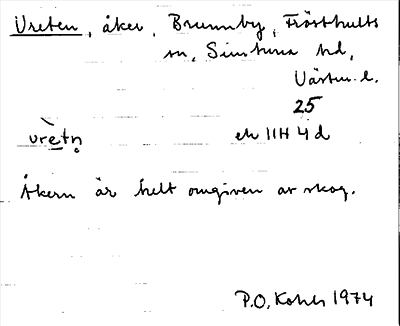 Vreten, åker, Brunnby, Frösthults
sn, Simtuna hd,
Västm. l.
25
vre̲tn̥
ek 11H 4d
Åkern är helt omgiven av skog.
P.O. 1974